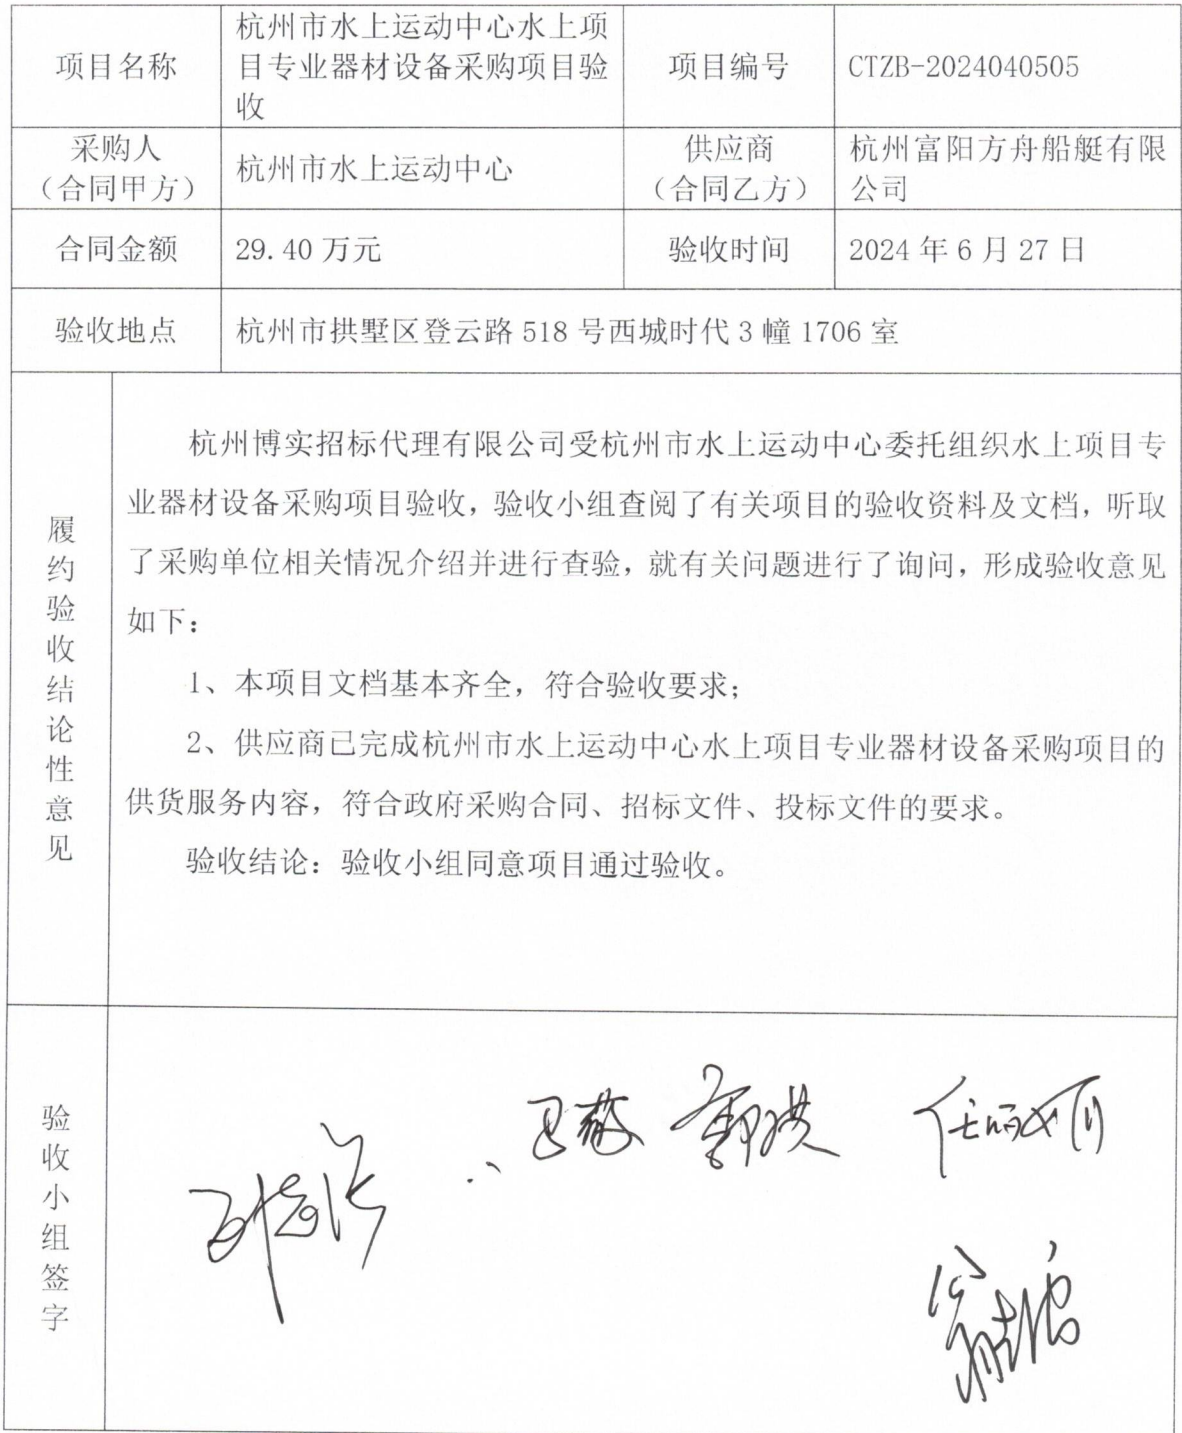 项目名称
杭州市水上运动中心水上项
目专业器材设备采购项目验
收
项目编号
CTZB-2024040505
采购人
（合同甲方）
杭州市水上运动中心
供应商
（合同乙方）
杭州富阳方舟船艇有限
公司
合同金额
29.40 万元
验收时间
2024 年 6 月 27 日
验收地点
杭州市拱墅区登云路 518 号西城时代 3 幢 1706 室
履约验收结论性意见
杭州博实招标代理有限公司受杭州市水上运动中心委托组织水上项目专
业器材设备采购项目验收，验收小组查阅了有关项目的验收资料及文档，听取
了采购单位相关情况介绍并进行查验，就有关问题进行了询问，形成验收意见
如下：
1、本项目文档基本齐全，符合验收要求；
2、供应商已完成杭州市水上运动中心水上项目专业器材设备采购项目的
供货服务内容，符合政府采购合同、招标文件、投标文件的要求。
验收结论：验收小组同意项目通过验收。
验收小组签字